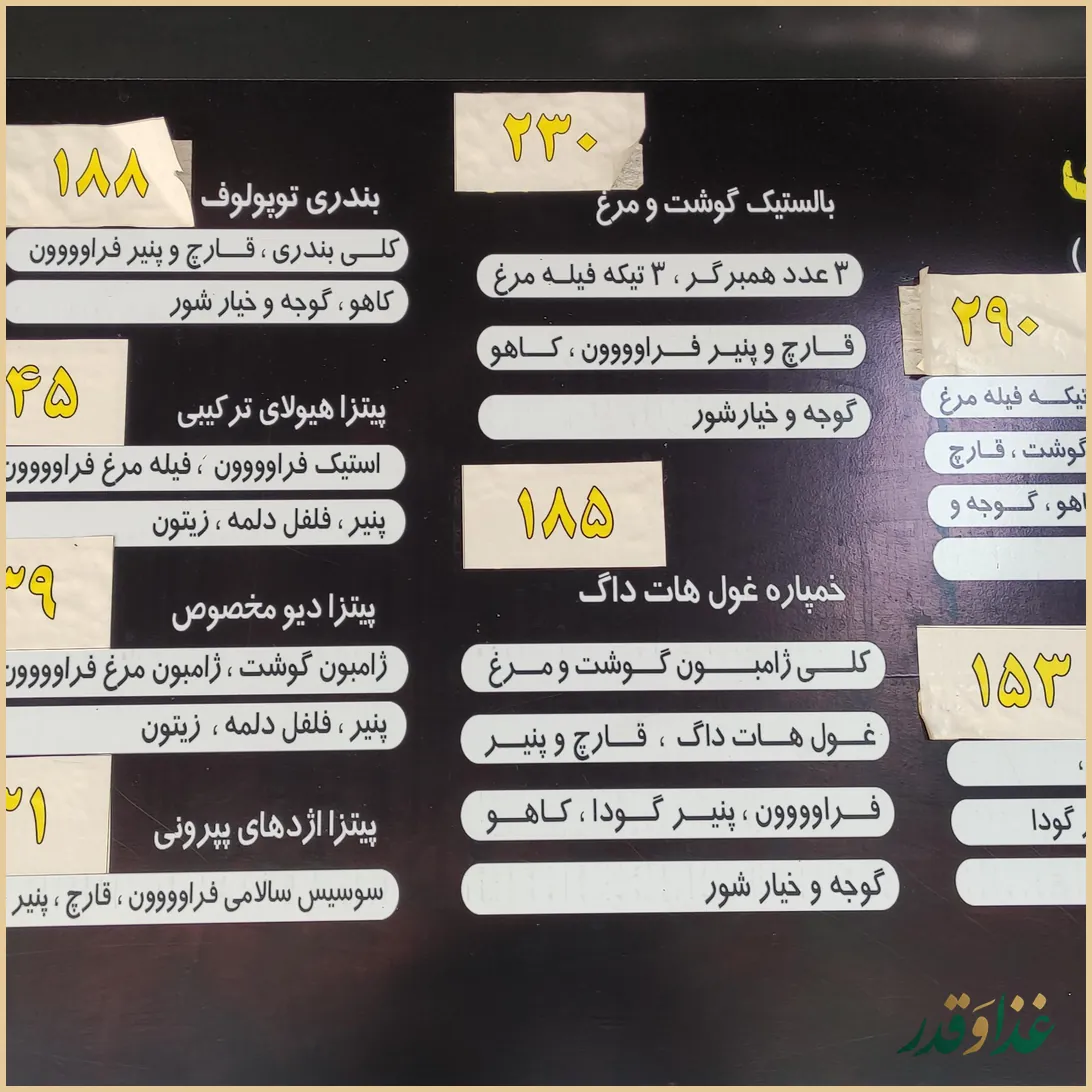 ۲۹۰
تیکــه فیله مرغ
گوشت ، قــارچ
گــوجه و
۱۵۳
،
گودا
۲۳۰
بالستیک گوشت و مرغ
۳ عدد همبرگــر ، ۳ تیکه فیلــه مرغ
قــارچ و پنیــر فــراوووون ، کــاهو
گوجه و خیارشور
۱۸۵
خمپاره غول هات داگ
کلــی ژامبــون گــوشت و مــرغ
غــول هــات داگ ، قــارچ و پنیــر
فــراوووون ، پنیــر گــودا ، کــاهــو
گوجه و خیار شور
۱۸۸
بندری توپولوف
کلــی بندری ، قــارچ و پنیر فراوووون
کاهو ، گوجه و خیار شور
۴۵
پیتزا هیولای ترکیبی
استیک فراوووون ، فیله مرغ فراوووون
پنیر ، فلفل دلمه ، زیتون
۳۹
پیتزا دیو مخصوص
ژامبون گوشت ، ژامبون مرغ فراوووون
پنیر ، فلفل دلمه ، زیتون
۲۱
پیتزا اژدهای پپرونی
سوسیس سالامی فراوووون ، قارچ ، پنیر
غذا و قدر